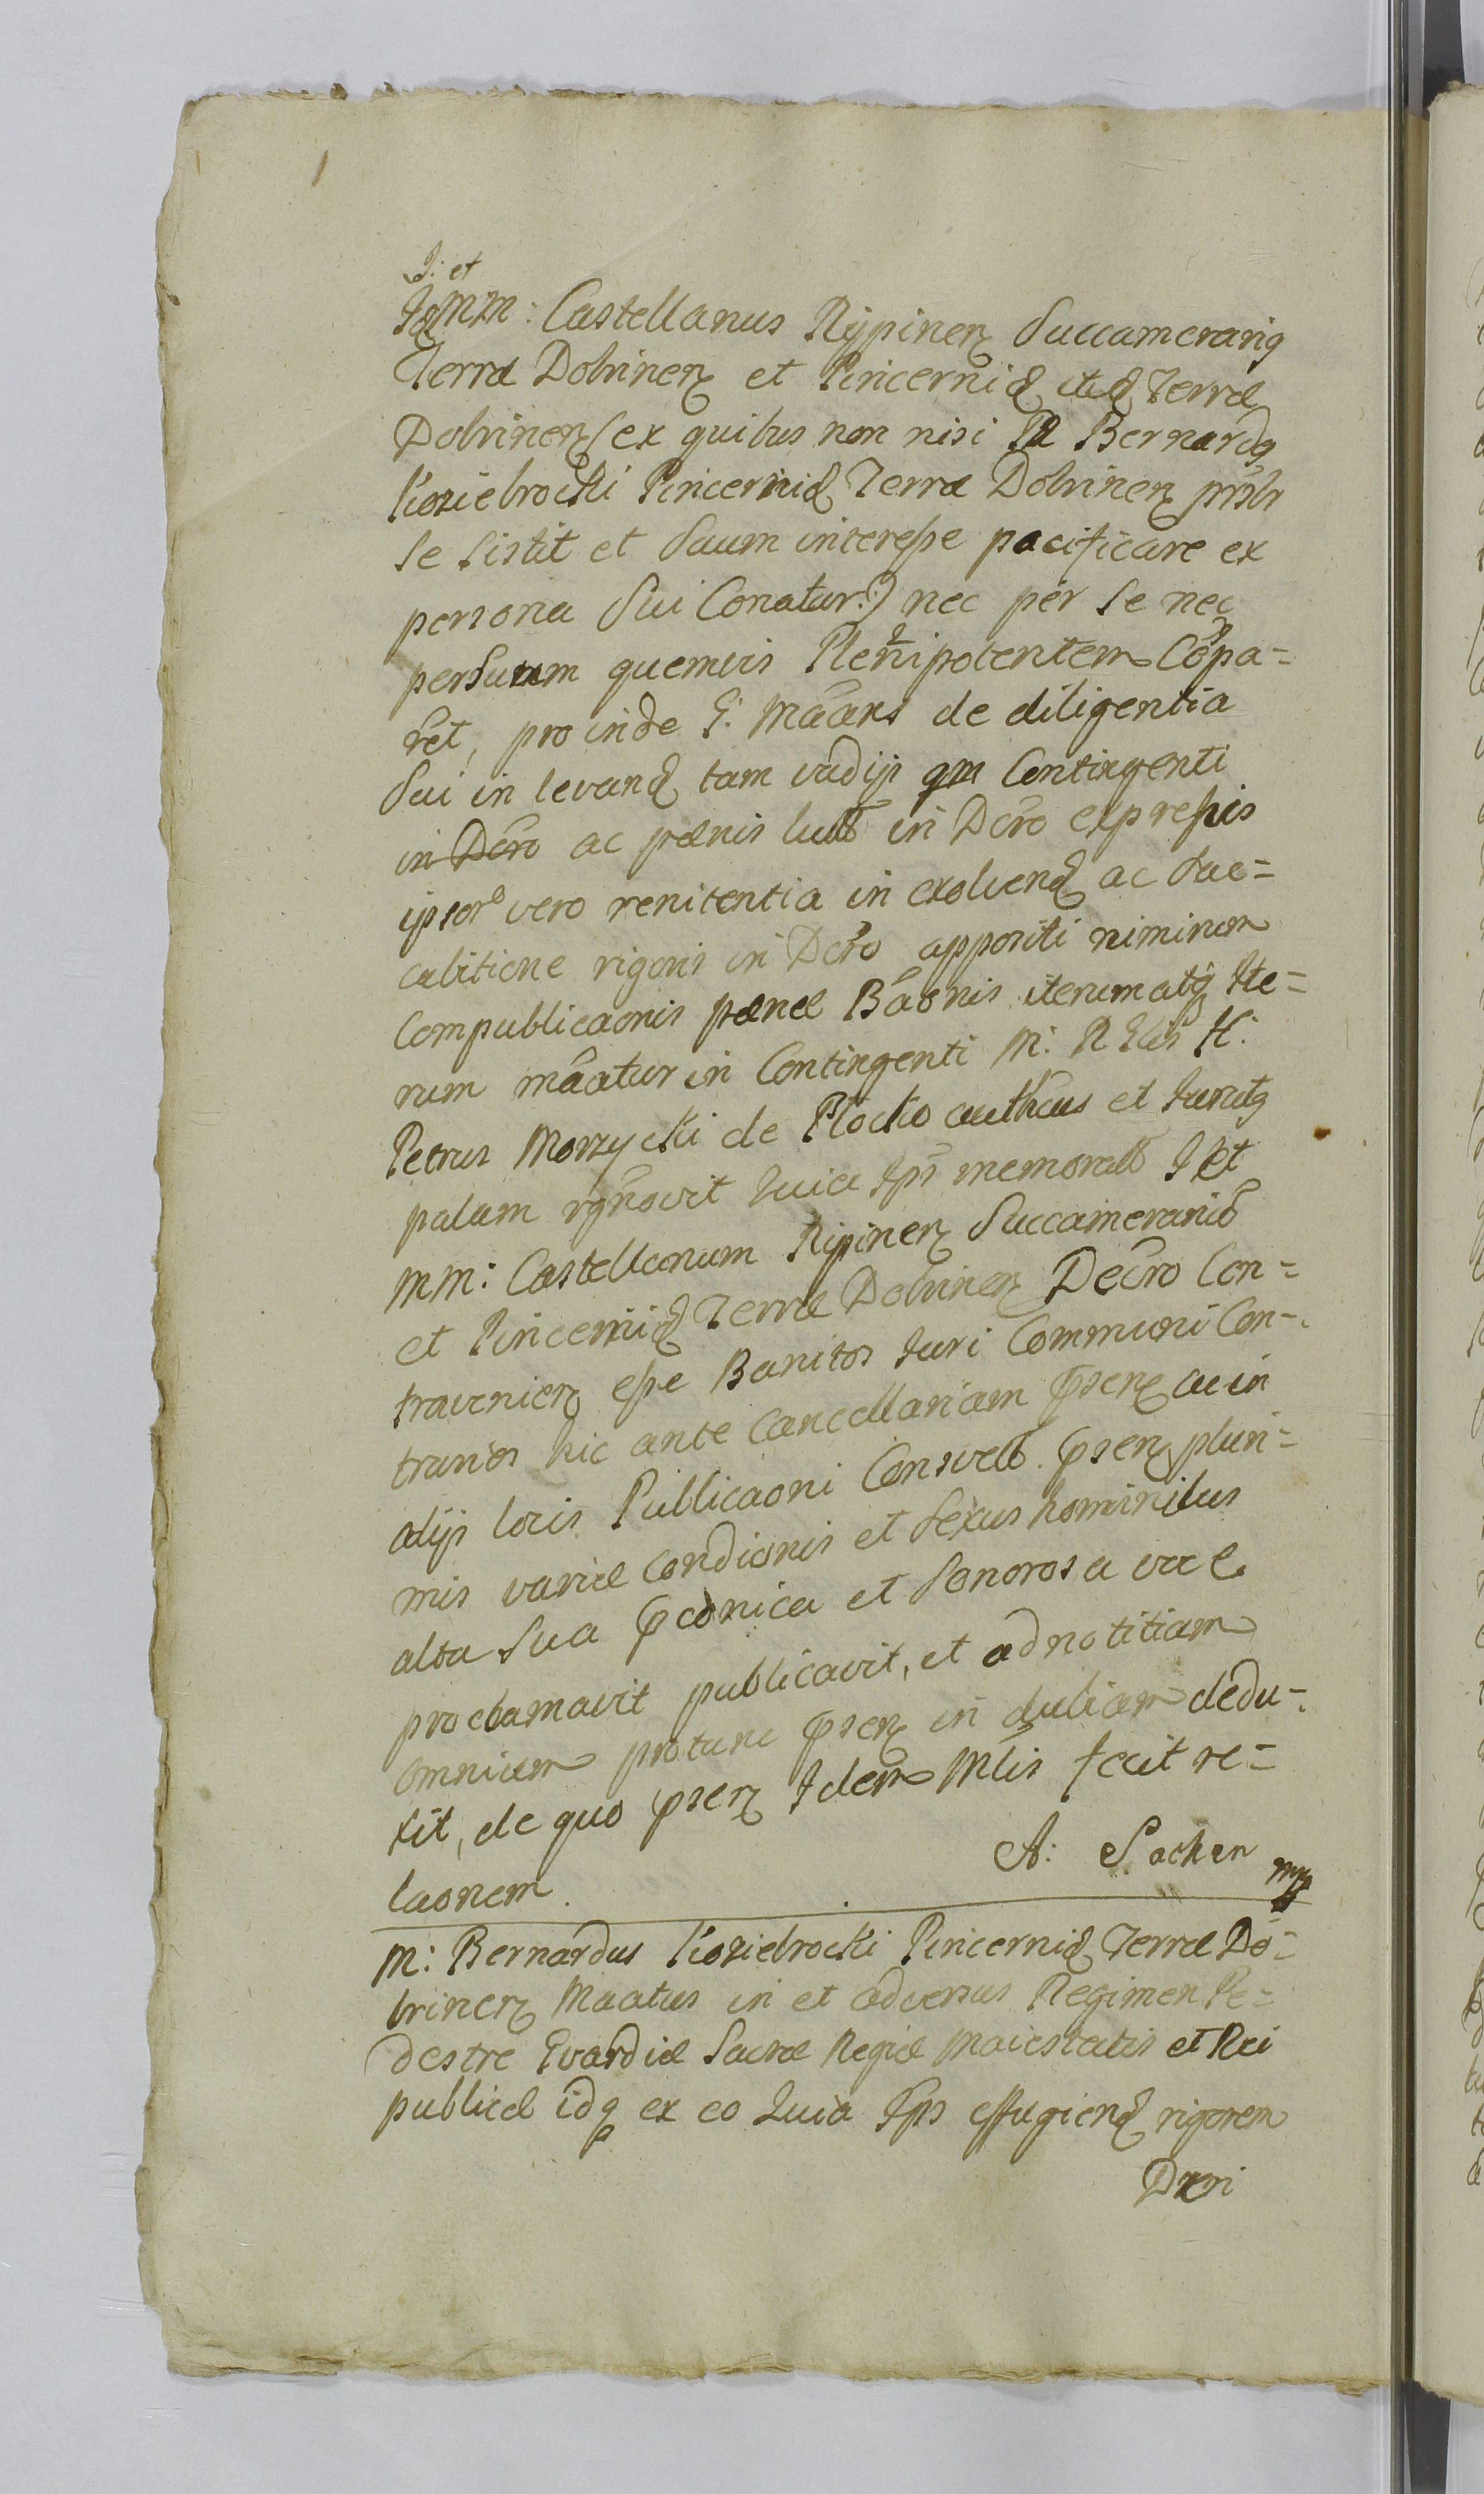 J: et
MM: Castellanus Rypinen Succamerariq
Terræ Dobrinen et Pincernid itid Terræ
Dobrinen (ex quibus non nisi M Bernardq
Koziebrocki Pincernid Terræ Dobrinen prnsbr
se sistit et Suum interesse pacificare ex
persona Sui Conatur:) nec per se nec
per Suum quemvis Plenipotentem Cõpa=
ret, pro inde G: Mããns de diligentia
Sui in levand tam vadij qm Contingenti
in Dcro ac pænis luib in Dcro expressis
ipsor vero renitentia in exolvend ac suc=
cubitione rigoris in Dcro appositi nimirum
Compublicaonis pænæ Bãonis iterum atq Ite=
rum mãatur in Contingenti M: R H:
Petrus Morzycki de Plocko authcus et Juratq
palam rgnovit Quia Ips memoratb J et
MM: Castellanum Ripinen Succamerarib
et Pincernid Terræ Dobrinen Decro Con=
travenien esse Banitos Juri Communi Con=
trarios hic ante Cancellariam psen ac in
alijs locis Publicaoni Consvetb psen pluri=
mis variæ Condicionis et Sexus hominibus
alta Sua pconica et Sonorosa voce
proclamavit publicavit, et ad notitiam
omnium pro tunc psen in dubiam dedu=
xit, de quo psen Idem Mlis fecit re=
laonem.
A: Sachen mp
M: Bernardus Koziebrocki Pincernid Terræ Do=
brinen Maatus in et adversus Regimen Pe=
destre Gvardiæ Sacræ Regiæ Maiestatis et Rei
publicæ idq ex eo Quia Ips effugiend rigorem
Dcri